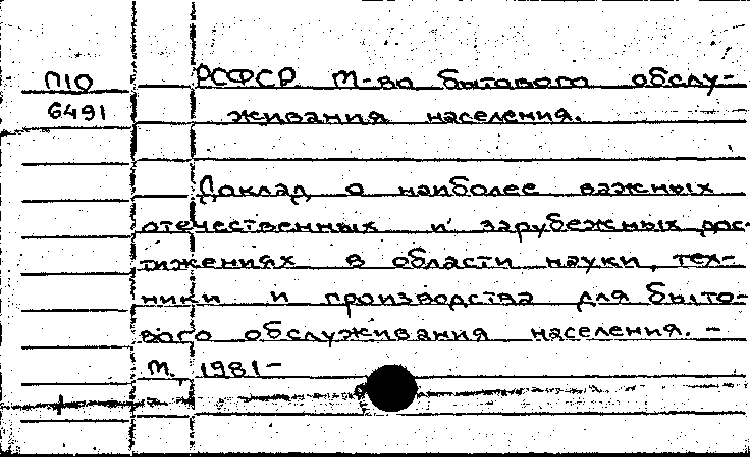 П10 РСФСР М-во бытового обслу-
6491 живания населения.
Доклад о наиболее важных
отечественных и зарубежных дос-
тижениях в области науки, тех-
ники и производства для быто-
вого обслуживания населения. -
М. 1981-